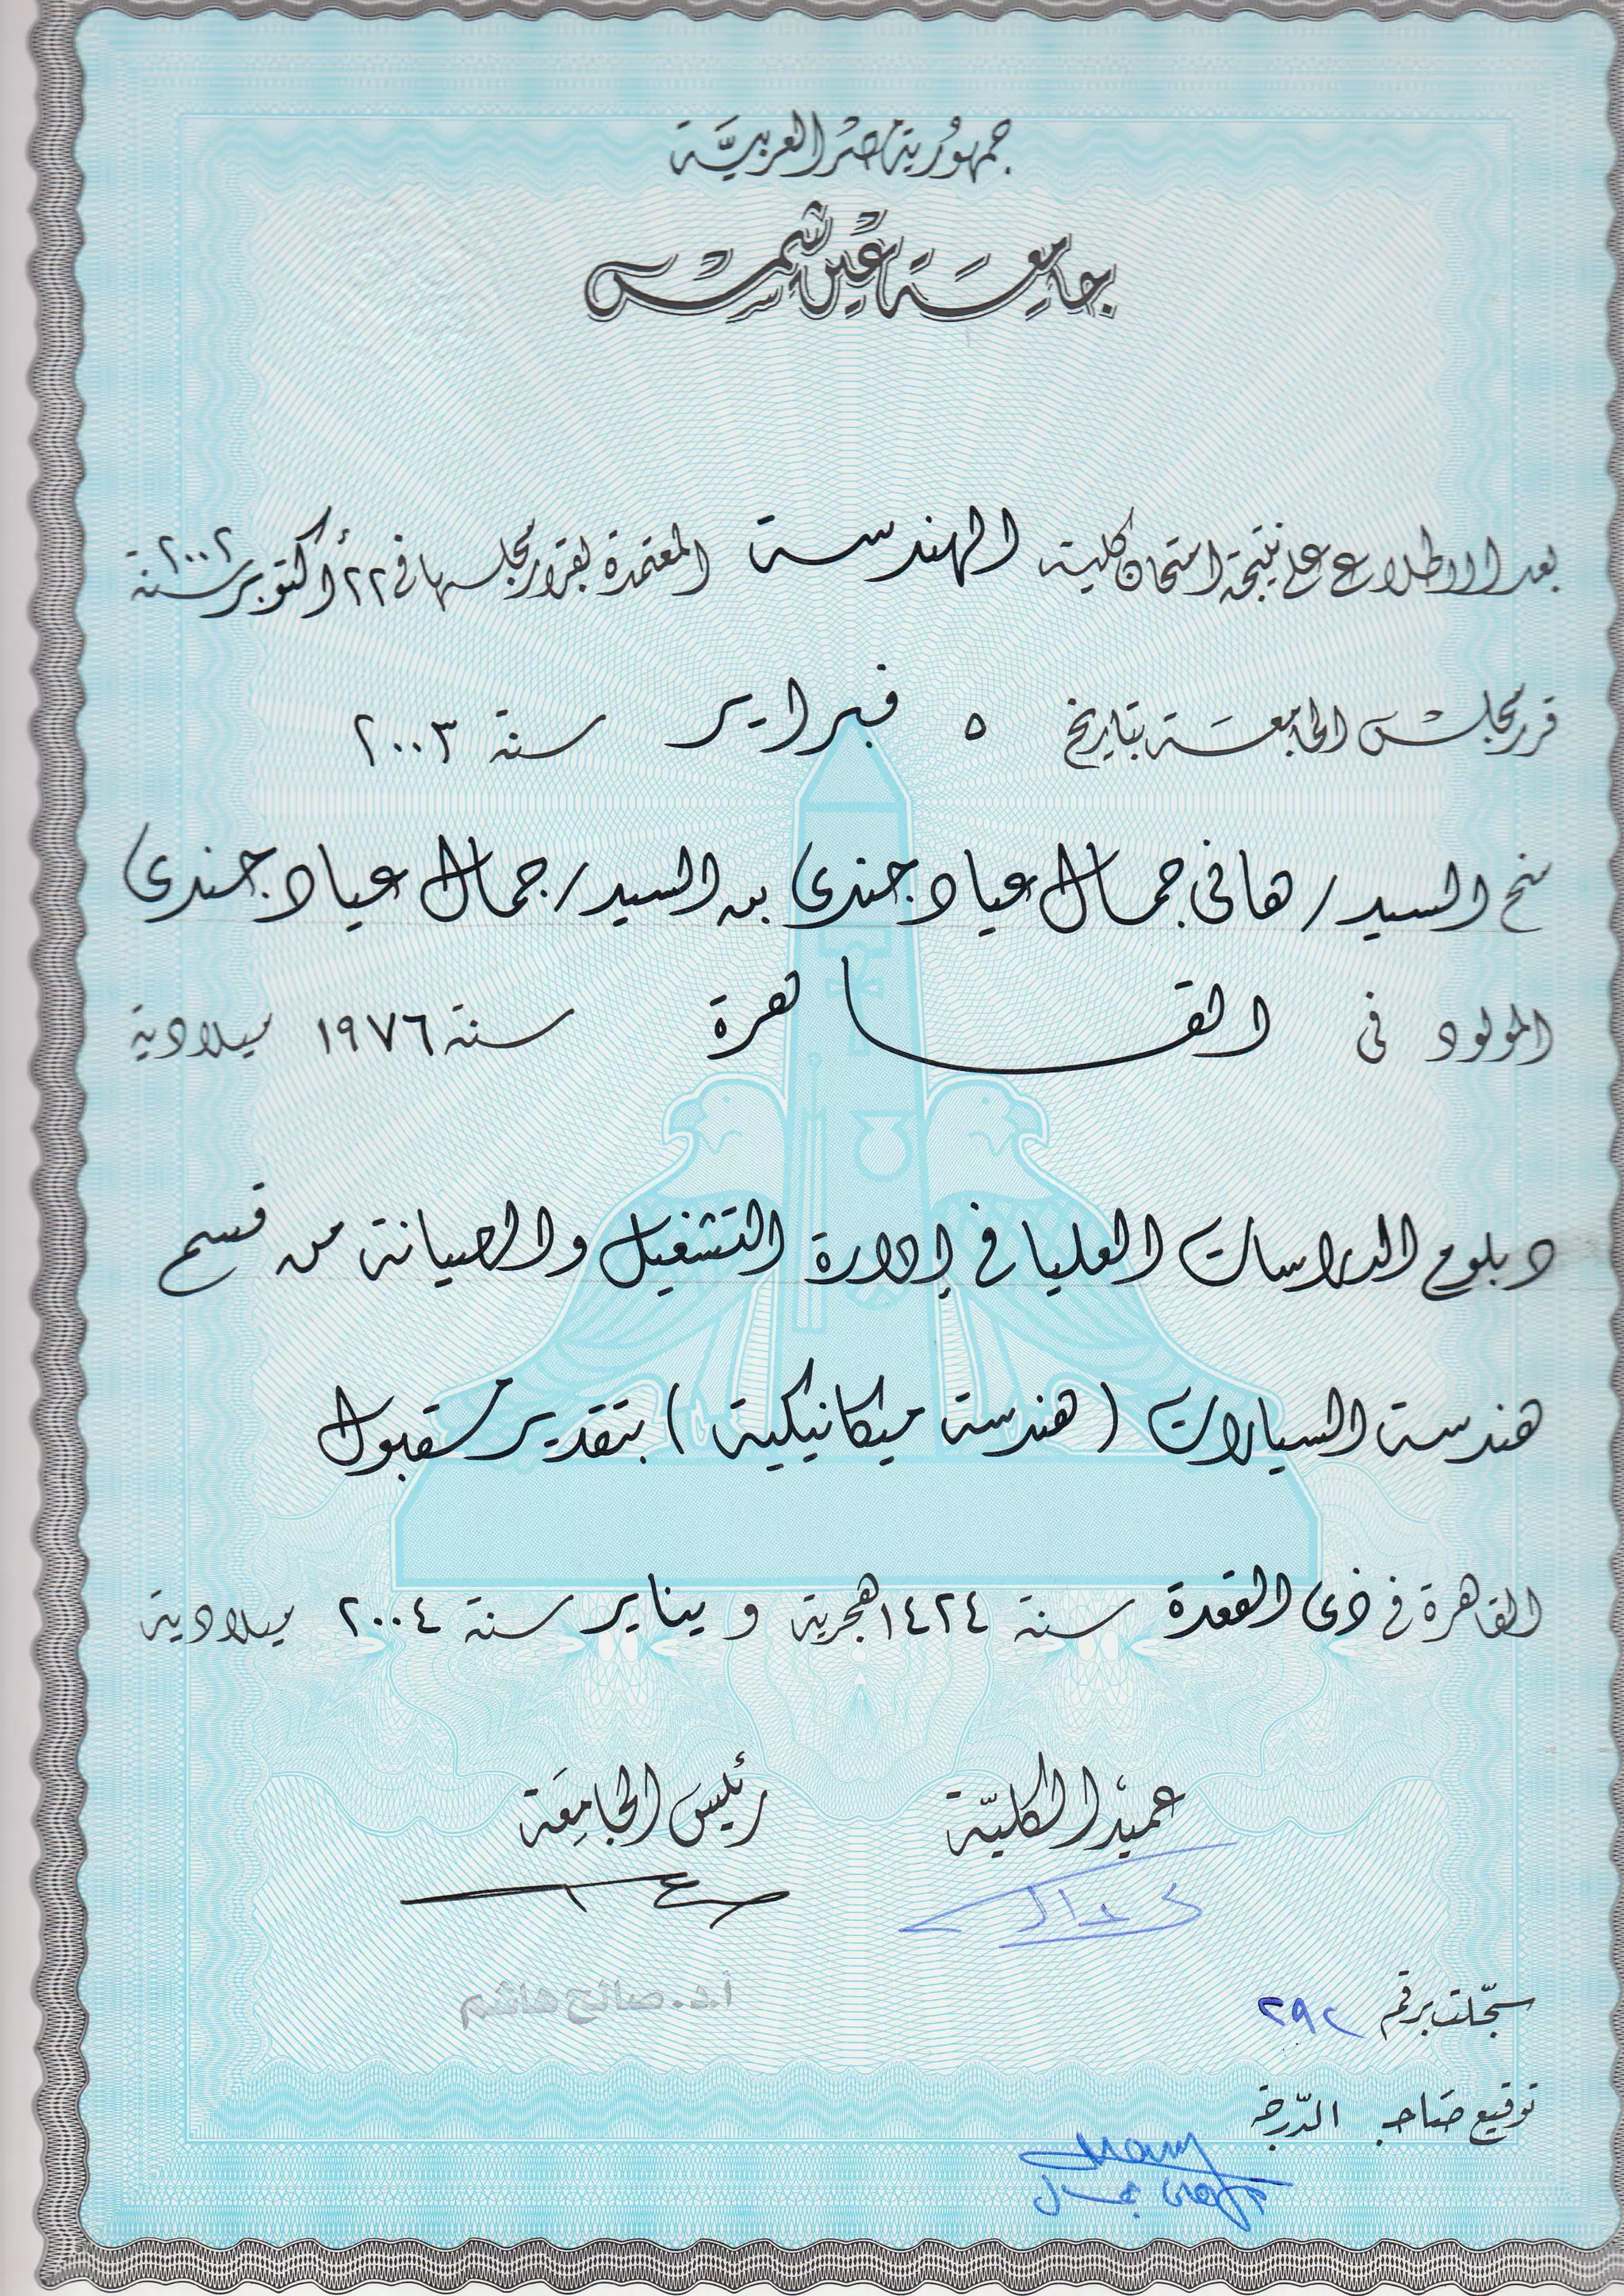 جمهورية مصر العربية
جامعة عين شمس
بعد الاطلاع على نتيجة امتحان كلية الهندسة المعتمدة بقرار مجلسها في ٢٢ أكتوبر سنة ٢٠٠٢
قرر مجلس الجامعة بتاريخ ٥ فبراير سنة ٢٠٠٣
منح السيد / هانى جمال عياد جندى بن السيد / جمال عياد جندى
المولود فى القاهرة سنة ١٩٧٦ ميلادية
دبلوم الدراسات العليا في إدارة التشغيل والصيانة من قسم
هندسة السيارات (هندسة ميكانيكية) بتقدير مقبول
القاهرة في ذى القعدة سنة ١٤٢٤ هجرية و يناير سنة ٢٠٠٤ ميلادية
عميد الكلية
رئيس الجامعة
أ.د. صالح هاشم
سجلت برقم ٢٩٢
توقيع صاحب الدرجة
Hany
هانى جمال